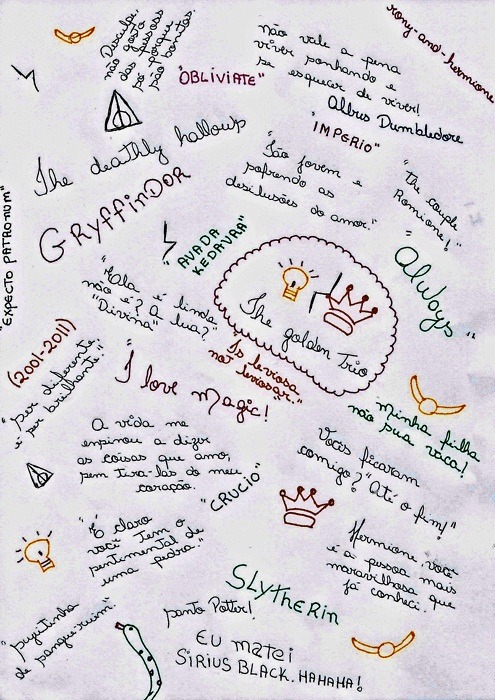 rony-and-hermione
Desculpa,
não gosto
das pessoas
só porque
são bonitas.
não vale a pena
viver sonhando e
se esquecer de viver!
Albus Dumbledore
"OBLIVIATE"
"IMPERIO"
The deathly hallows
"Tão jovem e
sofrendo as
desilusões do amor."
"The couple
Romione!"
GRYffINDOR
"EXPECTO PATRONUM"
"AVADA
KEDAVRA"
Always
"Ela é linda
não é? A lua?
"Divina"
The golden Trio
Is leviosa,
não leviosar."
(2001-2011)
"Ser diferente,
é ser brilhante!"
I love magic!
Minha filha
não sua vaca!
A vida me
ensinou a dizer
as coisas que amo,
sem tira-las do meu
coração.
Vocês ficaram
comigo? "Até o fim!"
"CRUCIO"
"É claro
você tem o
sentimental de
uma pedra."
Hermione, você
é a pessoa mais
maravilhosa que
já conheci.
SLYTHERIN
santo Potter!
"sujeitinha
de sangue-ruim"
EU MATEI
SIRIUS BLACK. HAHAHA!